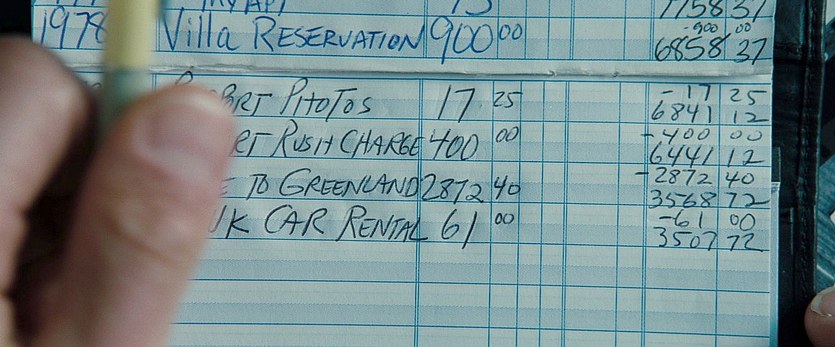 7758 37
1978 Villa RESERVATION 900 00 -900 00
6858 37
PHOTOS 17 25 -17 25
6841 12
RUSH CHARGE 400 00 -400 00
6441 12
TO GREENLAND 2872 40 -2872 40
3568 72
UK CAR RENTAL 61 00 -61 00
3507 72